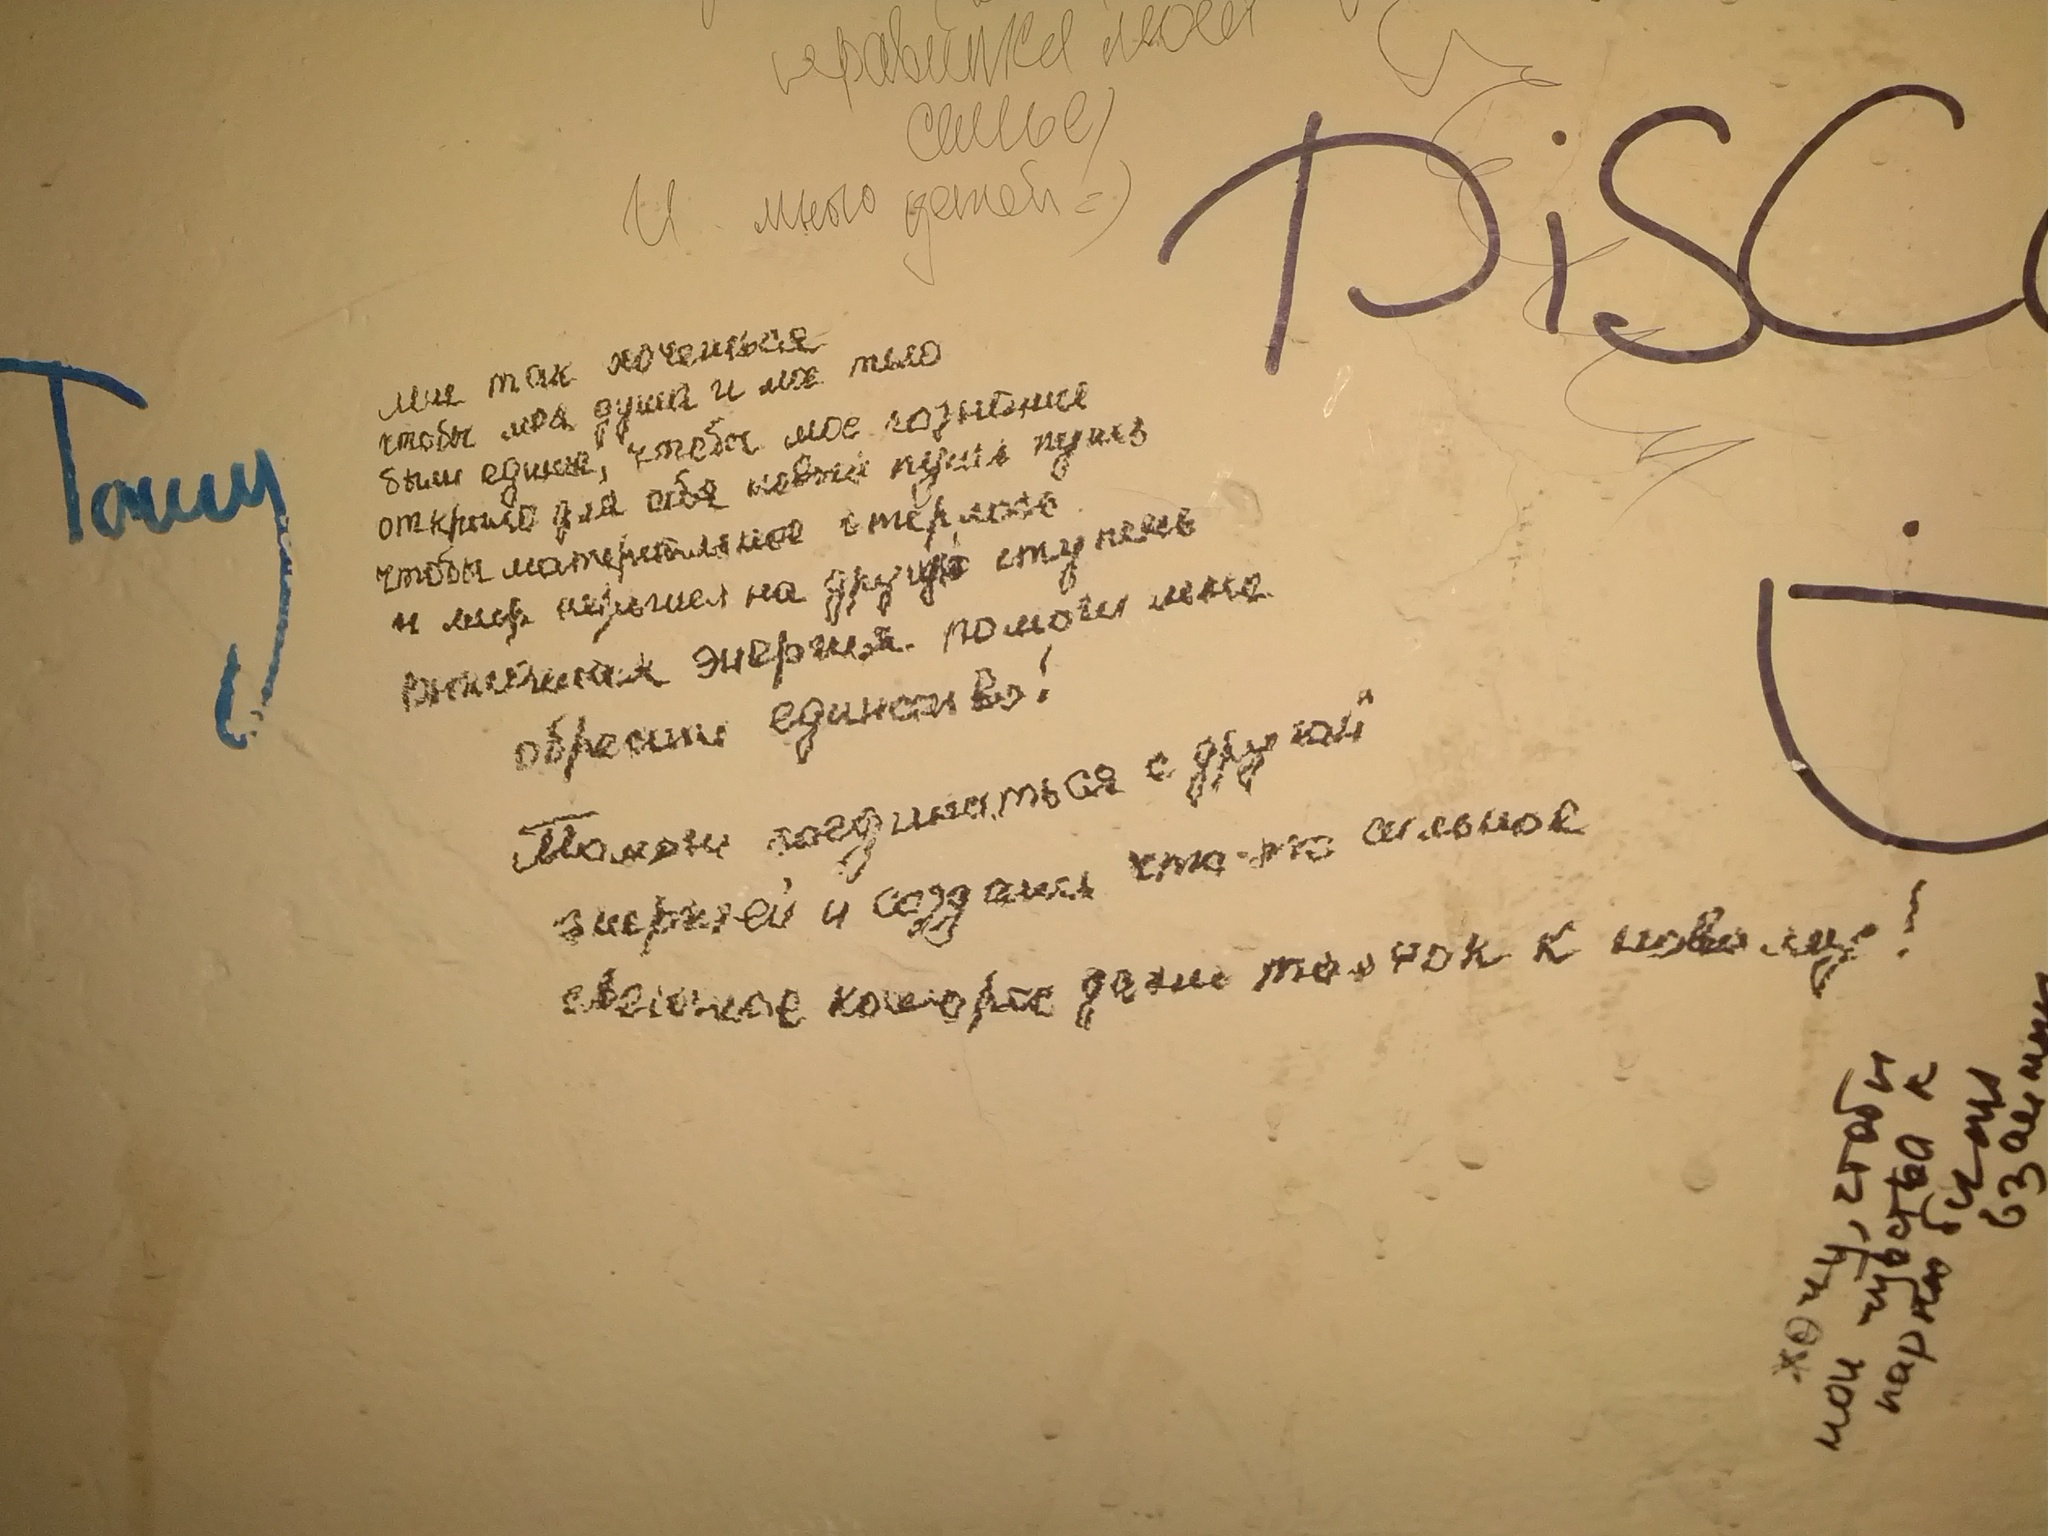 семье)
И много детей =)
DiSC
Тоши
мне так хочеться
чтобы моя душа и мое тело
были едины, чтобы мое сознание
открыло для себя новый
чтобы материальное стерлось
и мир перешел на другую ступень
энергия. помоги мне
обрести единство!
Помоги соединиться с другой
энергией и создать что-то сильное
светлое которое даст толчок к новому!
хочу, чтоби
мои чуства к
парню били
взаимни